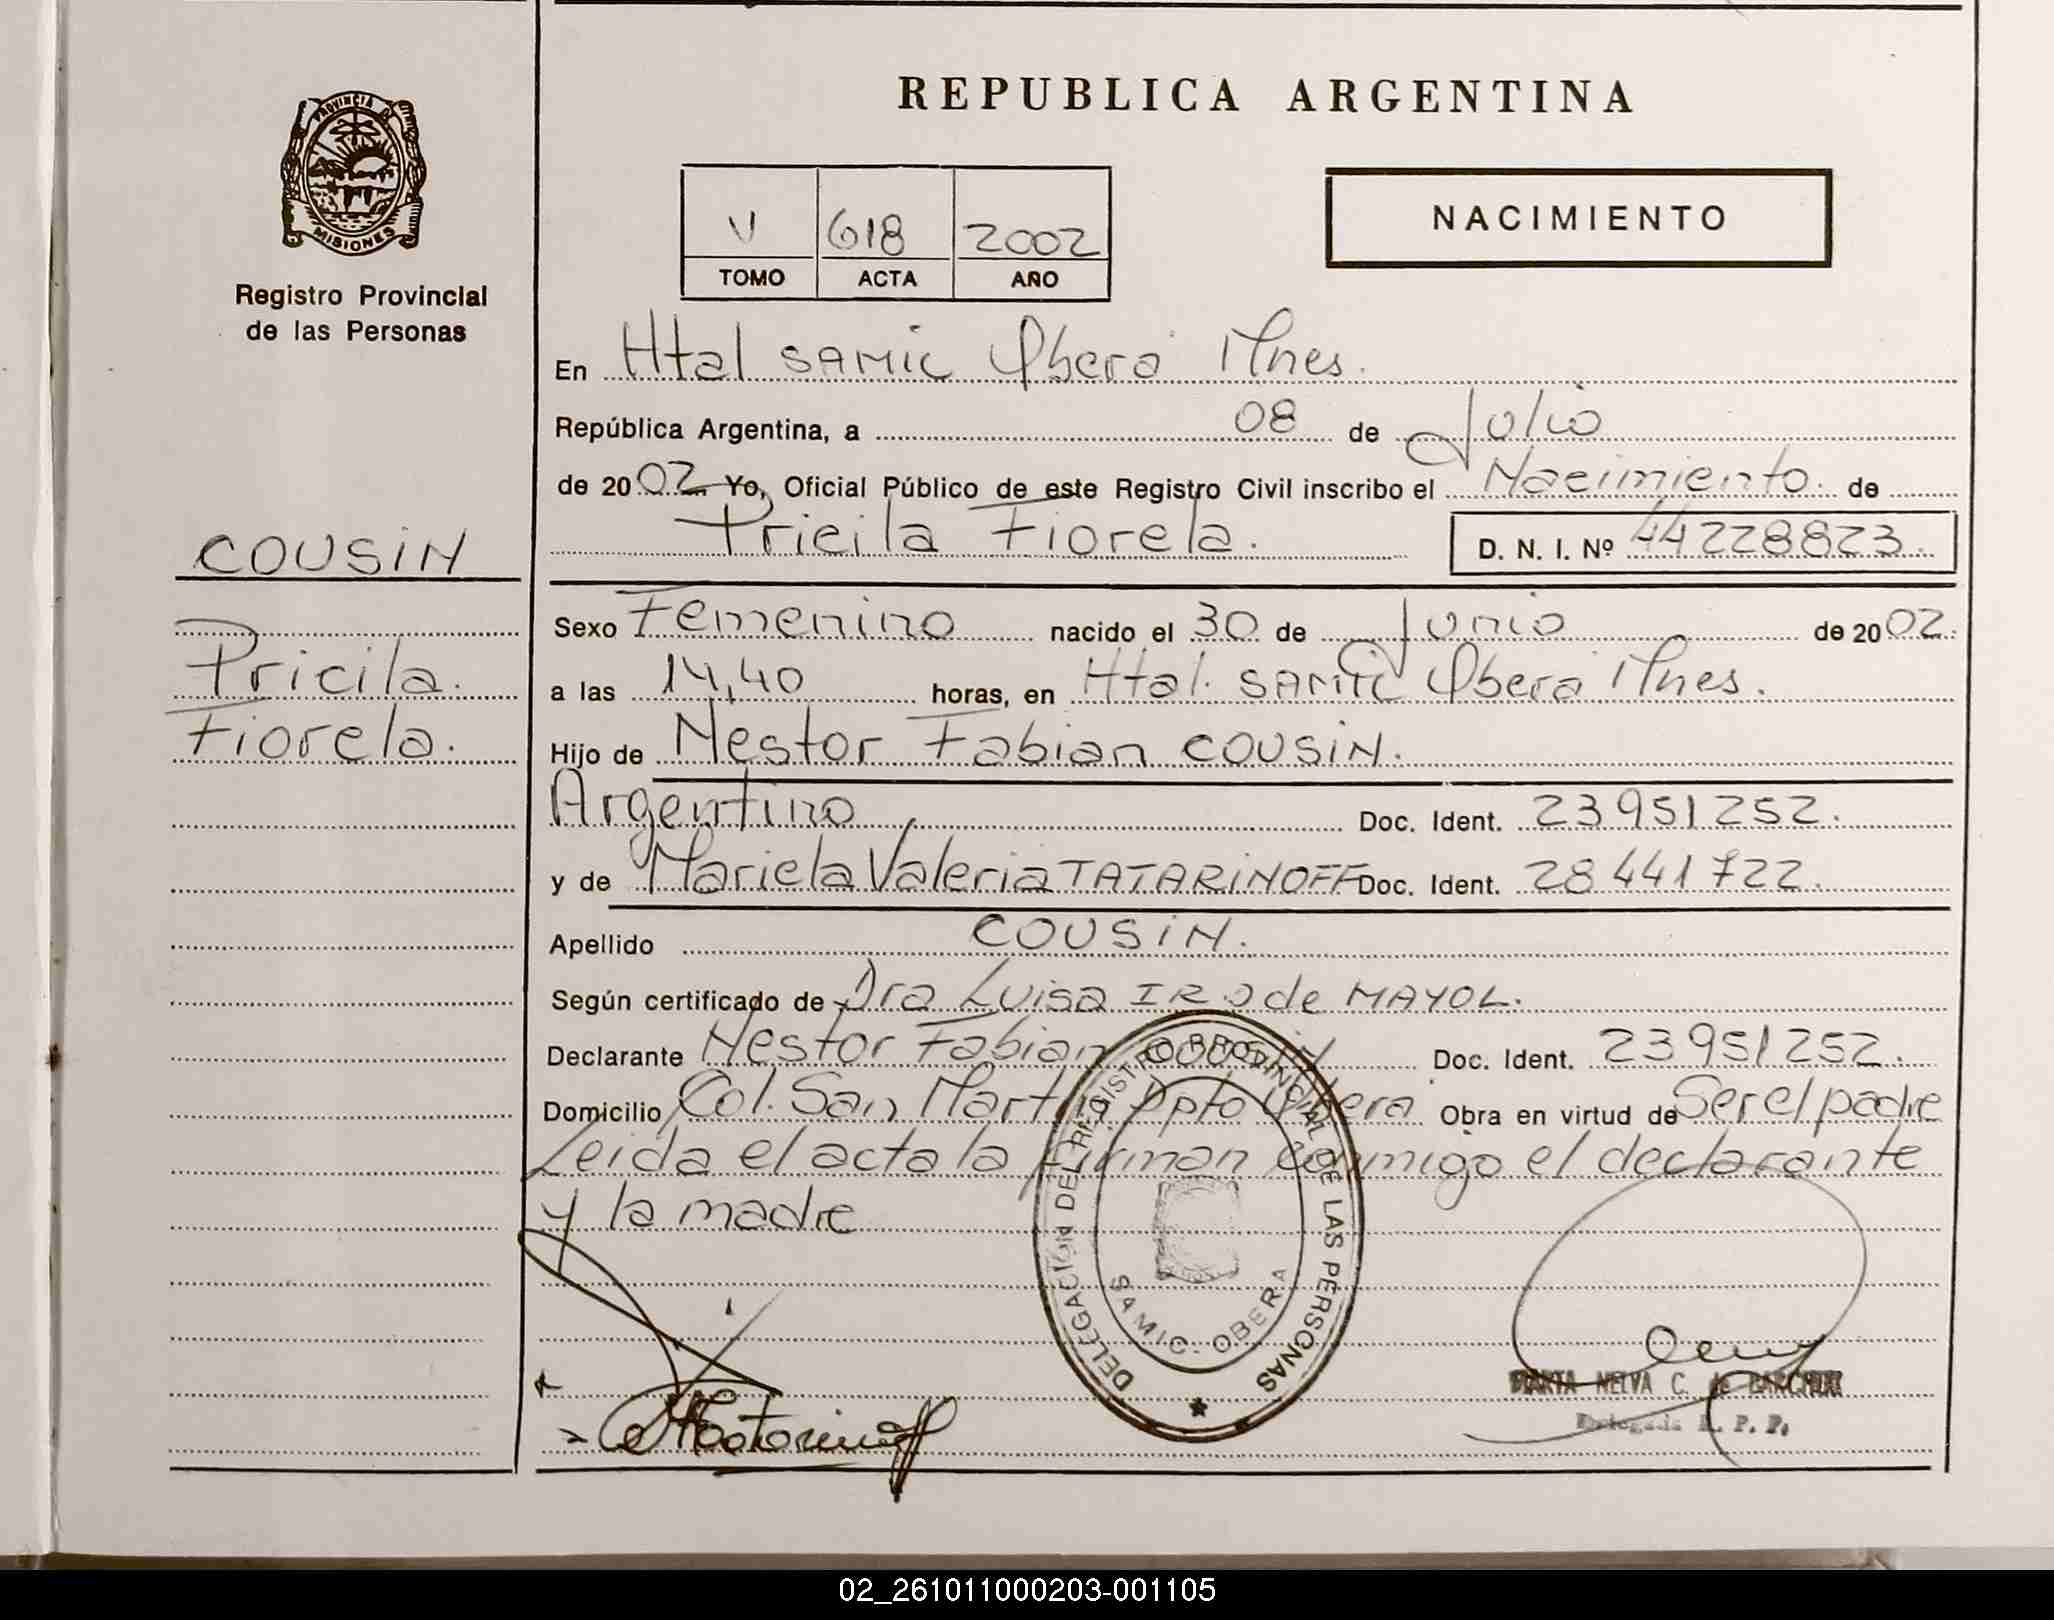 REPUBLICA ARGENTINA
PROVINCIA DE
MISIONES
Registro Provincial
de las Personas
V 618 2002
TOMO ACTA AÑO
NACIMIENTO
En Htal SAMIC Oberá Mnes.
República Argentina, a 08 de Julio
de 2002 Yo, Oficial Público de este Registro Civil inscribo el Nacimiento de
Pricila Fiorela.
D. N. I. Nº 44228823.
COUSIN
Pricila.
Fiorela.
Sexo Femenino nacido el 30 de Junio de 2002.
a las 14,40 horas, en Htal. SAMIC Oberá Mnes.
Hijo de Nestor Fabian COUSIN.
Argentino, Doc. Ident. 23951252.
y de Mariela Valeria TATARINOFF Doc. Ident. 28441722.
Apellido COUSIN.
Según certificado de Dra Luisa de MAYOL.
Declarante Nestor Fabian COUSIN Doc. Ident. 23951252.
Domicilio Col. San Martin Dpto Obera Obra en virtud de Ser el padre
Leida el acta la firman conmigo el declarante
y la madre
DELEGACION DEL REGISTRO PROVINCIAL DE LAS PERSONAS
SAMIC. OBERA
MARTA NELVA C. de
Delegada R. P. P.
02_261011000203-001105